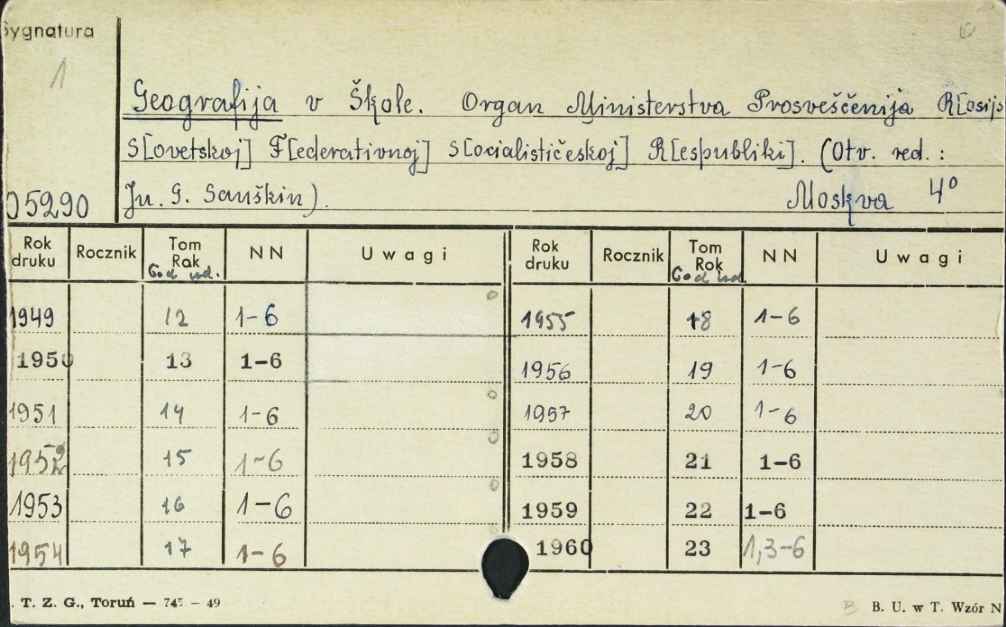 Sygnatura
1
Geografija v Škole. Organ Ministerstva Prosveščenija R[osijs
S[ovetskoj] F[ederativnoj] S[ocialističeskoj] R[espubliki]. (Otv. red.:
05290 Ju. G. Sauškin). Moskva 4°
Rok druku Rocznik Tom Rok God izd. NN Uwagi Rok druku Rocznik Tom Rok God izd. NN Uwagi
1949 12 1-6 1955 18 1-6
1950 13 1-6 1956 19 1-6
1951 14 1-6 1957 20 1-6
1952 15 1-6 1958 21 1-6
1953 16 1-6 1959 22 1-6
1954 17 1-6 1960 23 1,3-6
. T. Z. G., Toruń — 745 — 49 B. U. w T. Wzór N